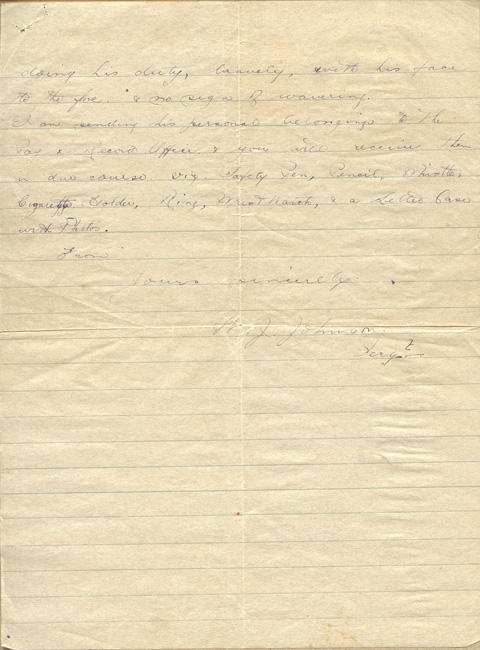 doing his duty, bravely, with his face
to the foe. & no sign of wavering.
I am sending his personal belongings to the
Pay & Record Office & you will receive them
in due course. viz. Safety Pen, Pencil, Whistle,
Cigarette Holder, Ring, Wrist Watch, & a Letter Case
with Photos.
From
Yours sincerely.
J. Johnson.
Sergt